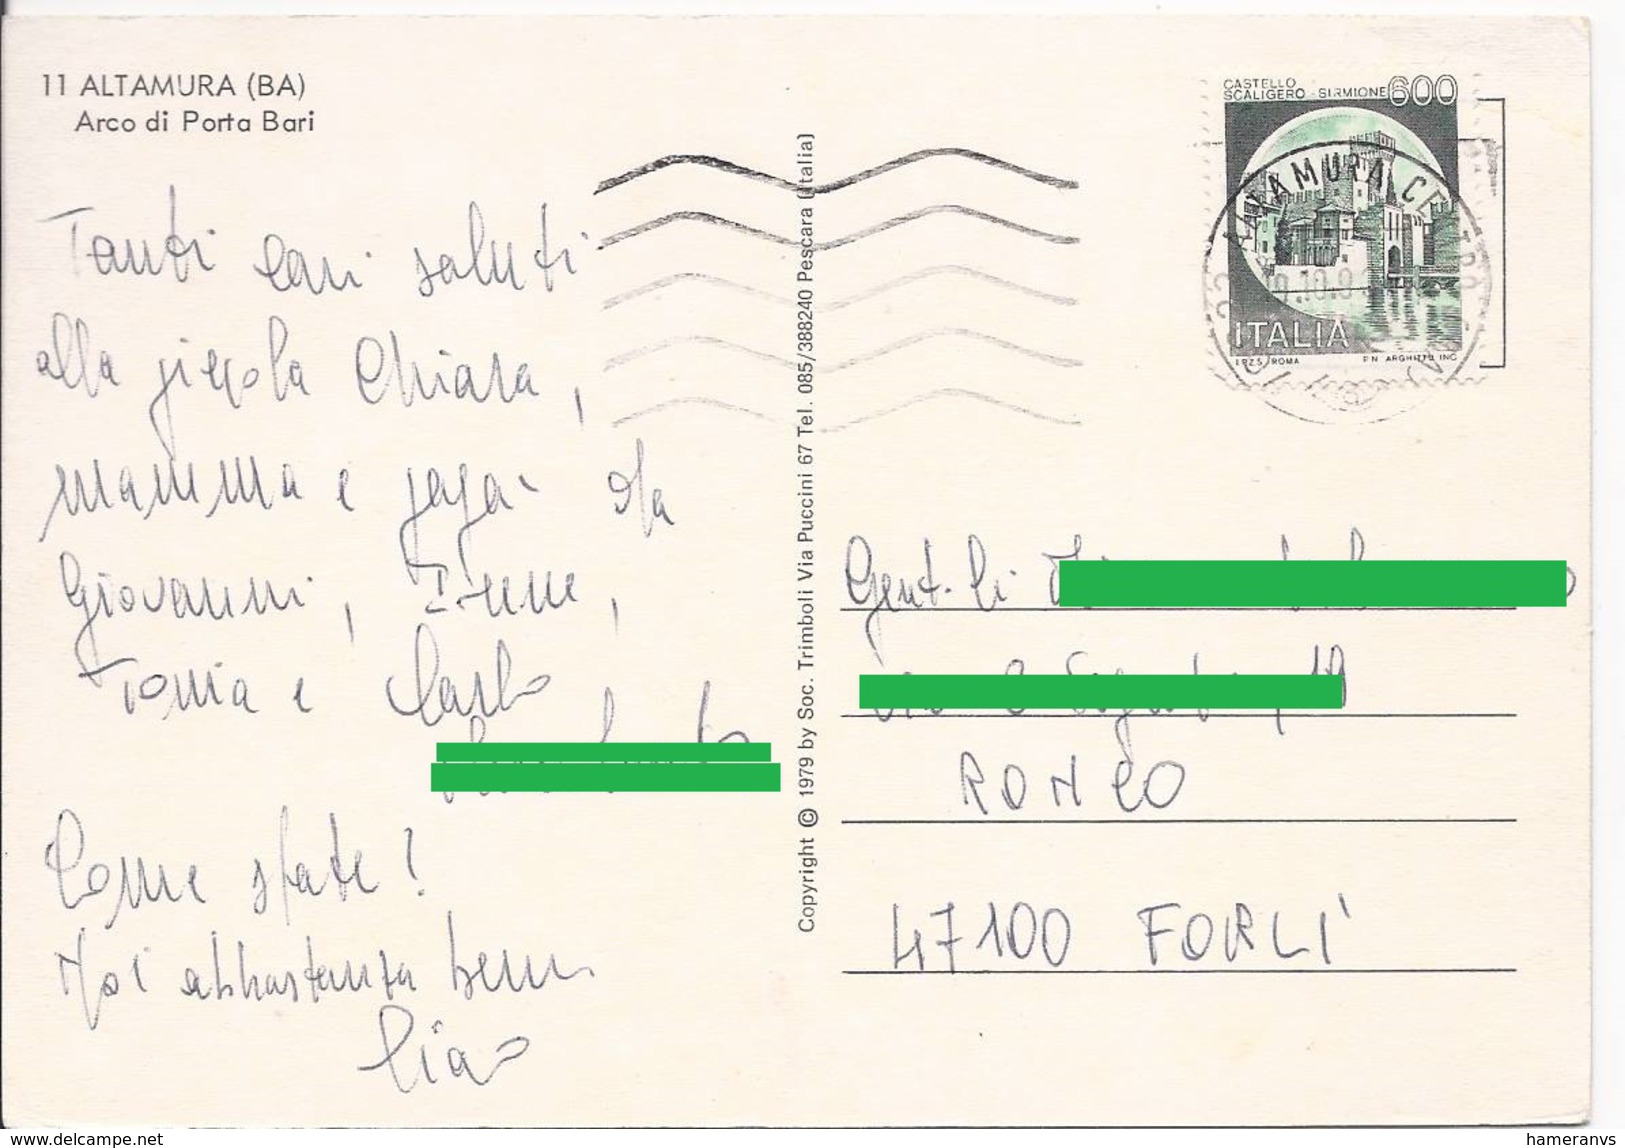 11 ALTAMURA (BA)
Arco di Porta Bari
Tanti cari saluti
alla piccola Chiara,
mamma e papà da
Giovanni,
Tonia e Carlo
Come state?
Noi abbastanza bene.
Ciao
Copyright © 1979 by Soc. Trimboli Via Puccini 67 Tel. 085/388240 Pescara (Italia)
CASTELLO
SCALIGERO - SIRMIONE 600
ITALIA
I.P.Z.S. ROMA P.N. ARGHITTU INC.
ALTAMURA CENTRO
Gent.li
RONCO
47100 FORLI'
www.delcampe.net
hameranvs